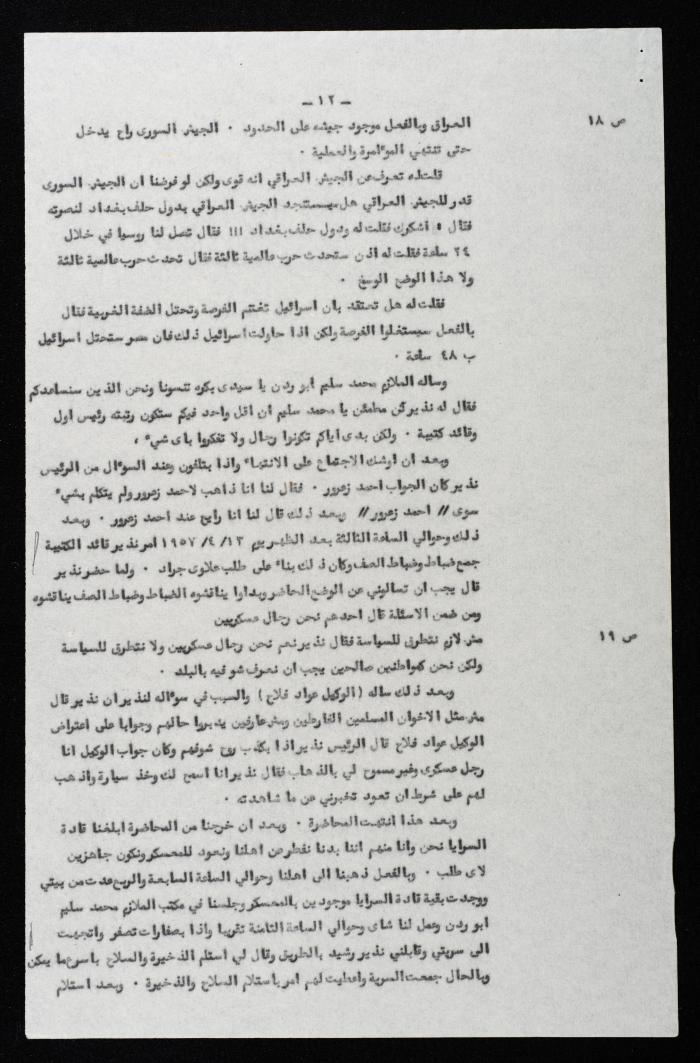 - ١٢ -
ص ١٨
العراق وبالفعل موجود جيشه على الحدود . الجيش السوري راح يدخل
حتى تنتهي المؤامرة والعملية .
قلت له تعرف عن الجيش العراقي انه قوى ولكن لو فرضنا ان الجيش السورى
قدر للجيش العراقي هل سيستنجد الجيش العراقي بدول حلف بغداد لنصرته
فقال اشكرك فقلت له ودول حلف بغداد !!! فقال تصل لنا روسيا في خلال
٢٤ ساعة فقلت له اذن ستحدث حرب عالمية ثالثة فقال تحدث حرب عالمية ثالثة
ولا هذا الوضع الوسخ .
فقلت له هل تعتقد بان اسرائيل تغتنم الفرصة وتحتل الضفة الغربية فقال
بالفعل سيستغلوا الفرصة ولكن اذا حاولت اسرائيل ذلك فان مصر ستحتل اسرائيل
ب ٤٨ ساعة .
وساله الملازم محمد سليم ابو ردن يا سيدى بكره تنسونا ونحن الذين سنساعدكم
فقال له نذير كن مطمئن يا محمد سليم ان اقل واحد فيكم ستكون رتبته رئيس اول
وقائد كتيبة . ولكن بدى اياكم تكونوا رجال ولا تفكروا باى شيء ،
وبعد ان اوشك الاجتماع على الانتهاء واذا بتلفون وعند السؤال من الرئيس
نذير كان الجواب احمد زعرور . فقال لنا انا ذاهب لاحمد زعرور ولم يتكلم بشيء
سوى // احمد زعرور // وبعد ذلك قال لنا انا رايح عند احمد زعرور . وبعد
ذلك وحوالي الساعة الثالثة بعد الظهر يوم ١٣ /٤/ ١٩٥٧ امر نذير قائد الكتيبة
جمع ضباط وضباط الصف وكان ذلك بناء على طلب علاوى جراد . ولما حضر نذير
قال يجب ان تسالوني عن الوضع الحاضر وبداوا يناقشوه الضباط وضباط الصف يناقشوه
ومن ضمن الاسئلة قال احدهم نحن رجال عسكريين
ص ١٩
مش لازم نتطرق للسياسة فقال نذير نعم نحن رجال عسكريين ولا نتطرق للسياسة
ولكن نحن كمواطنين صالحين يجب ان نعرف شو فيه بالبلد .
وبعد ذلك ساله ( الوكيل عواد فلاح ) والسبب في سؤاله لنذير ان نذير قال
مش مثل الاخوان المسلمين الفارطين ومش عارفين يدبروا حالهم وجوابا على اعتراض
الوكيل عواد فلاح قال الرئيس نذير اذا بكذب روح شوفهم وكان جواب الوكيل انا
رجل عسكرى وغير مسموح لي بالذهاب فقال نذير انا اسمح لك وخذ سيارة واذهب
لهم على شرط ان تعود تخبرني عن ما شاهدته .
وبعد هذا انتهت المحاضرة . وبعد ان خرجنا من المحاضرة ابلغنا قادة
السرايا نحن وانا منهم اننا بدنا نفطر عن اهلنا ونعود للمعسكر ونكون جاهزين
لاى طلب . وبالفعل ذهبنا الى اهلنا وحوالي الساعة السابعة والربع عدت من بيتي
ووجدت بقية قادة السرايا موجودين بالمعسكر وجلسنا في مكتب الملازم محمد سليم
ابو ردن وعمل لنا شاى وحوالي الساعة الثامنة تقريبا واذا بصفارات تصفر واتجهت
الى سريتي وقابلني نذير رشيد بالطريق وقال لي استلم الذخيرة والسلاح باسرع ما يمكن
وبالحال جمعت السرية واعطيت لهم امر باستلام السلاح والذخيرة . وبعد استلام